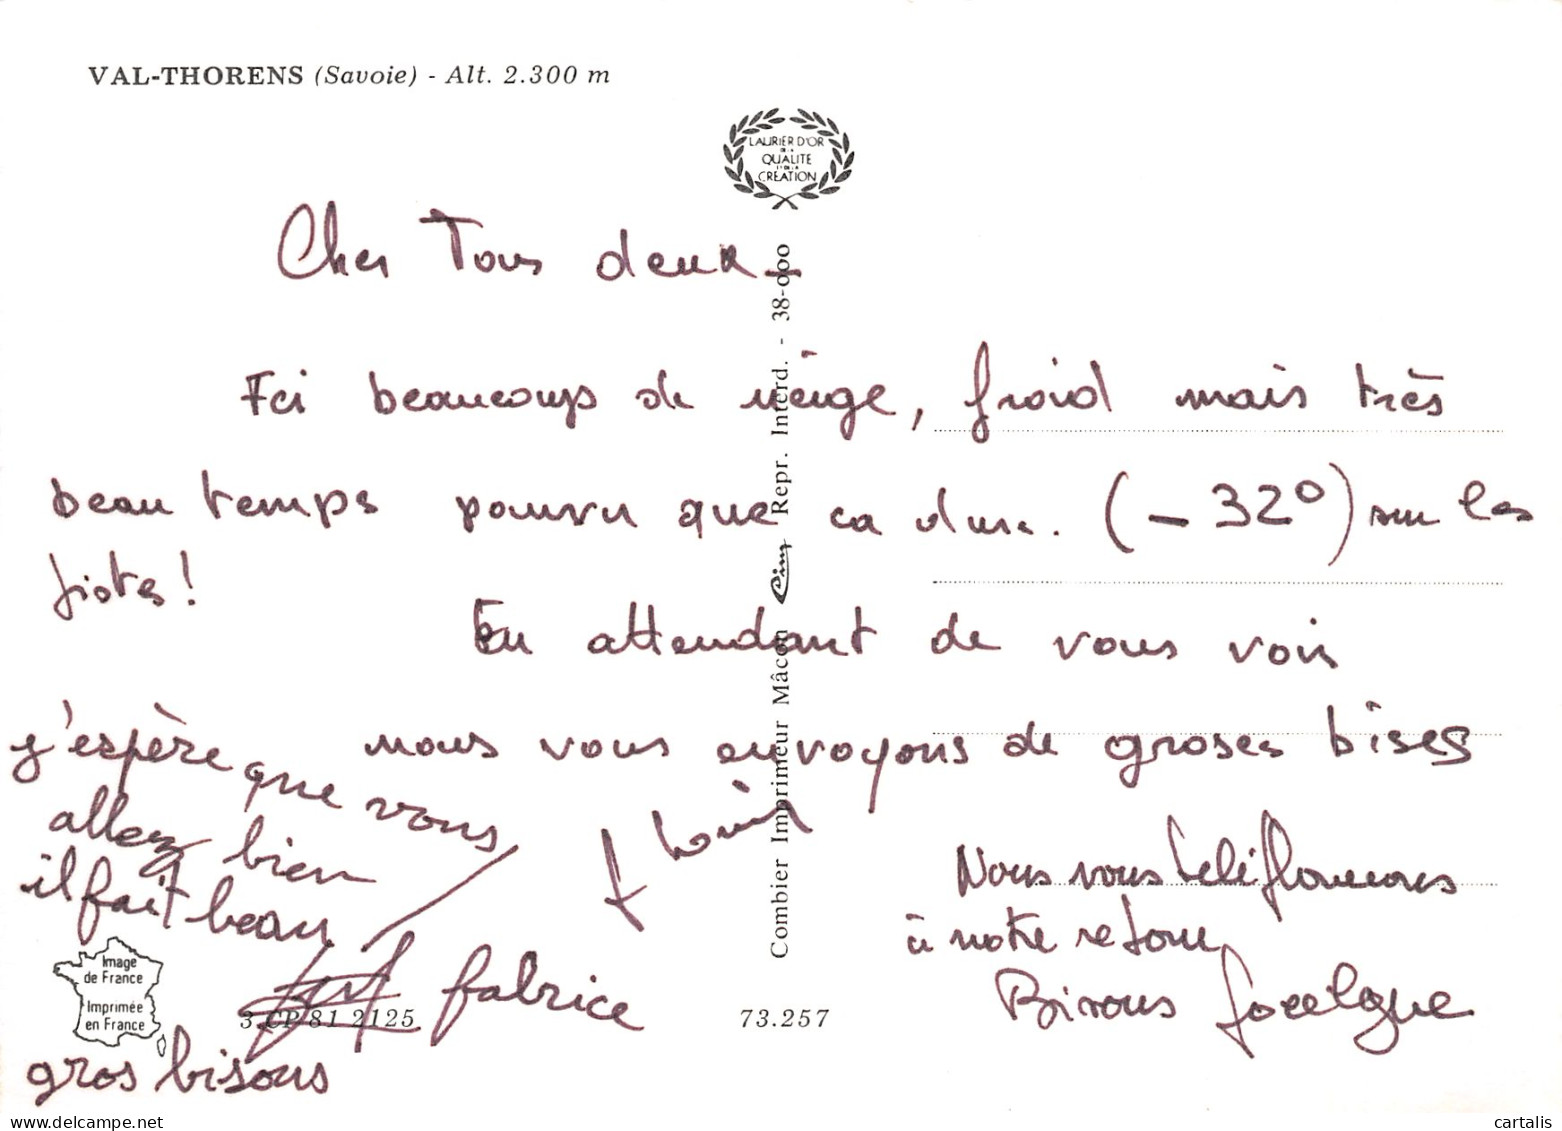 VAL-THORENS (Savoie) - Alt. 2.300 m
LAURIER D'OR
DE LA
QUALITE
ET DE LA
CREATION
Cher Tous deux
Ici beaucoup de neige, froid mais très
beau temps pourvu que ca dure. (-32°) sur les
pistes!
En attendant de vous voir
nous vous envoyons de groses bises
j'espère que vous
allez bien
il fait beau
fabrice
gros bisous
Nous vous téléfonerons
à notre retour
Bisous Jocelyne
Combier Imprimeur Mâcon Cim Repr. Interd. - 38-000
Image
de France
Imprimée
en France
3 CP 81 2125
73.257
delcampe.net
cartalis